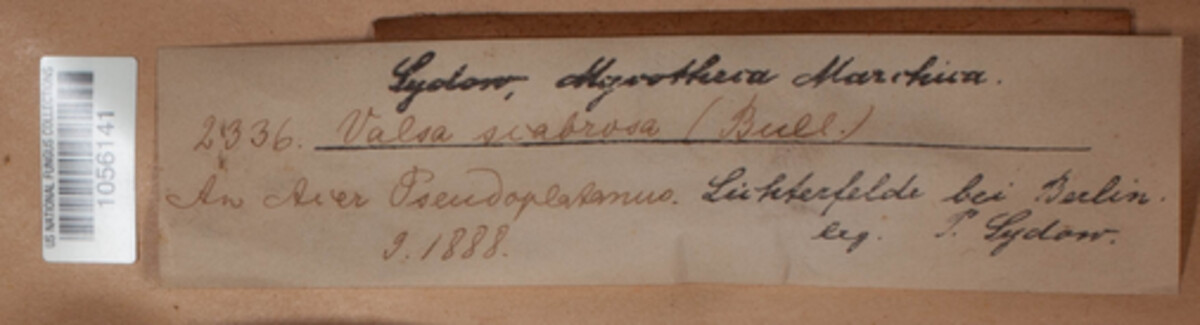 US NATIONAL FUNGUS COLLECTIONS
1056141
Sydow, Mycotheca Marchica.
2336. Valsa scabrosa (Bull.)
An Acer Pseudoplatanus. Lichterfelde bei Berlin.
9.1888. leg. P. Sydow.